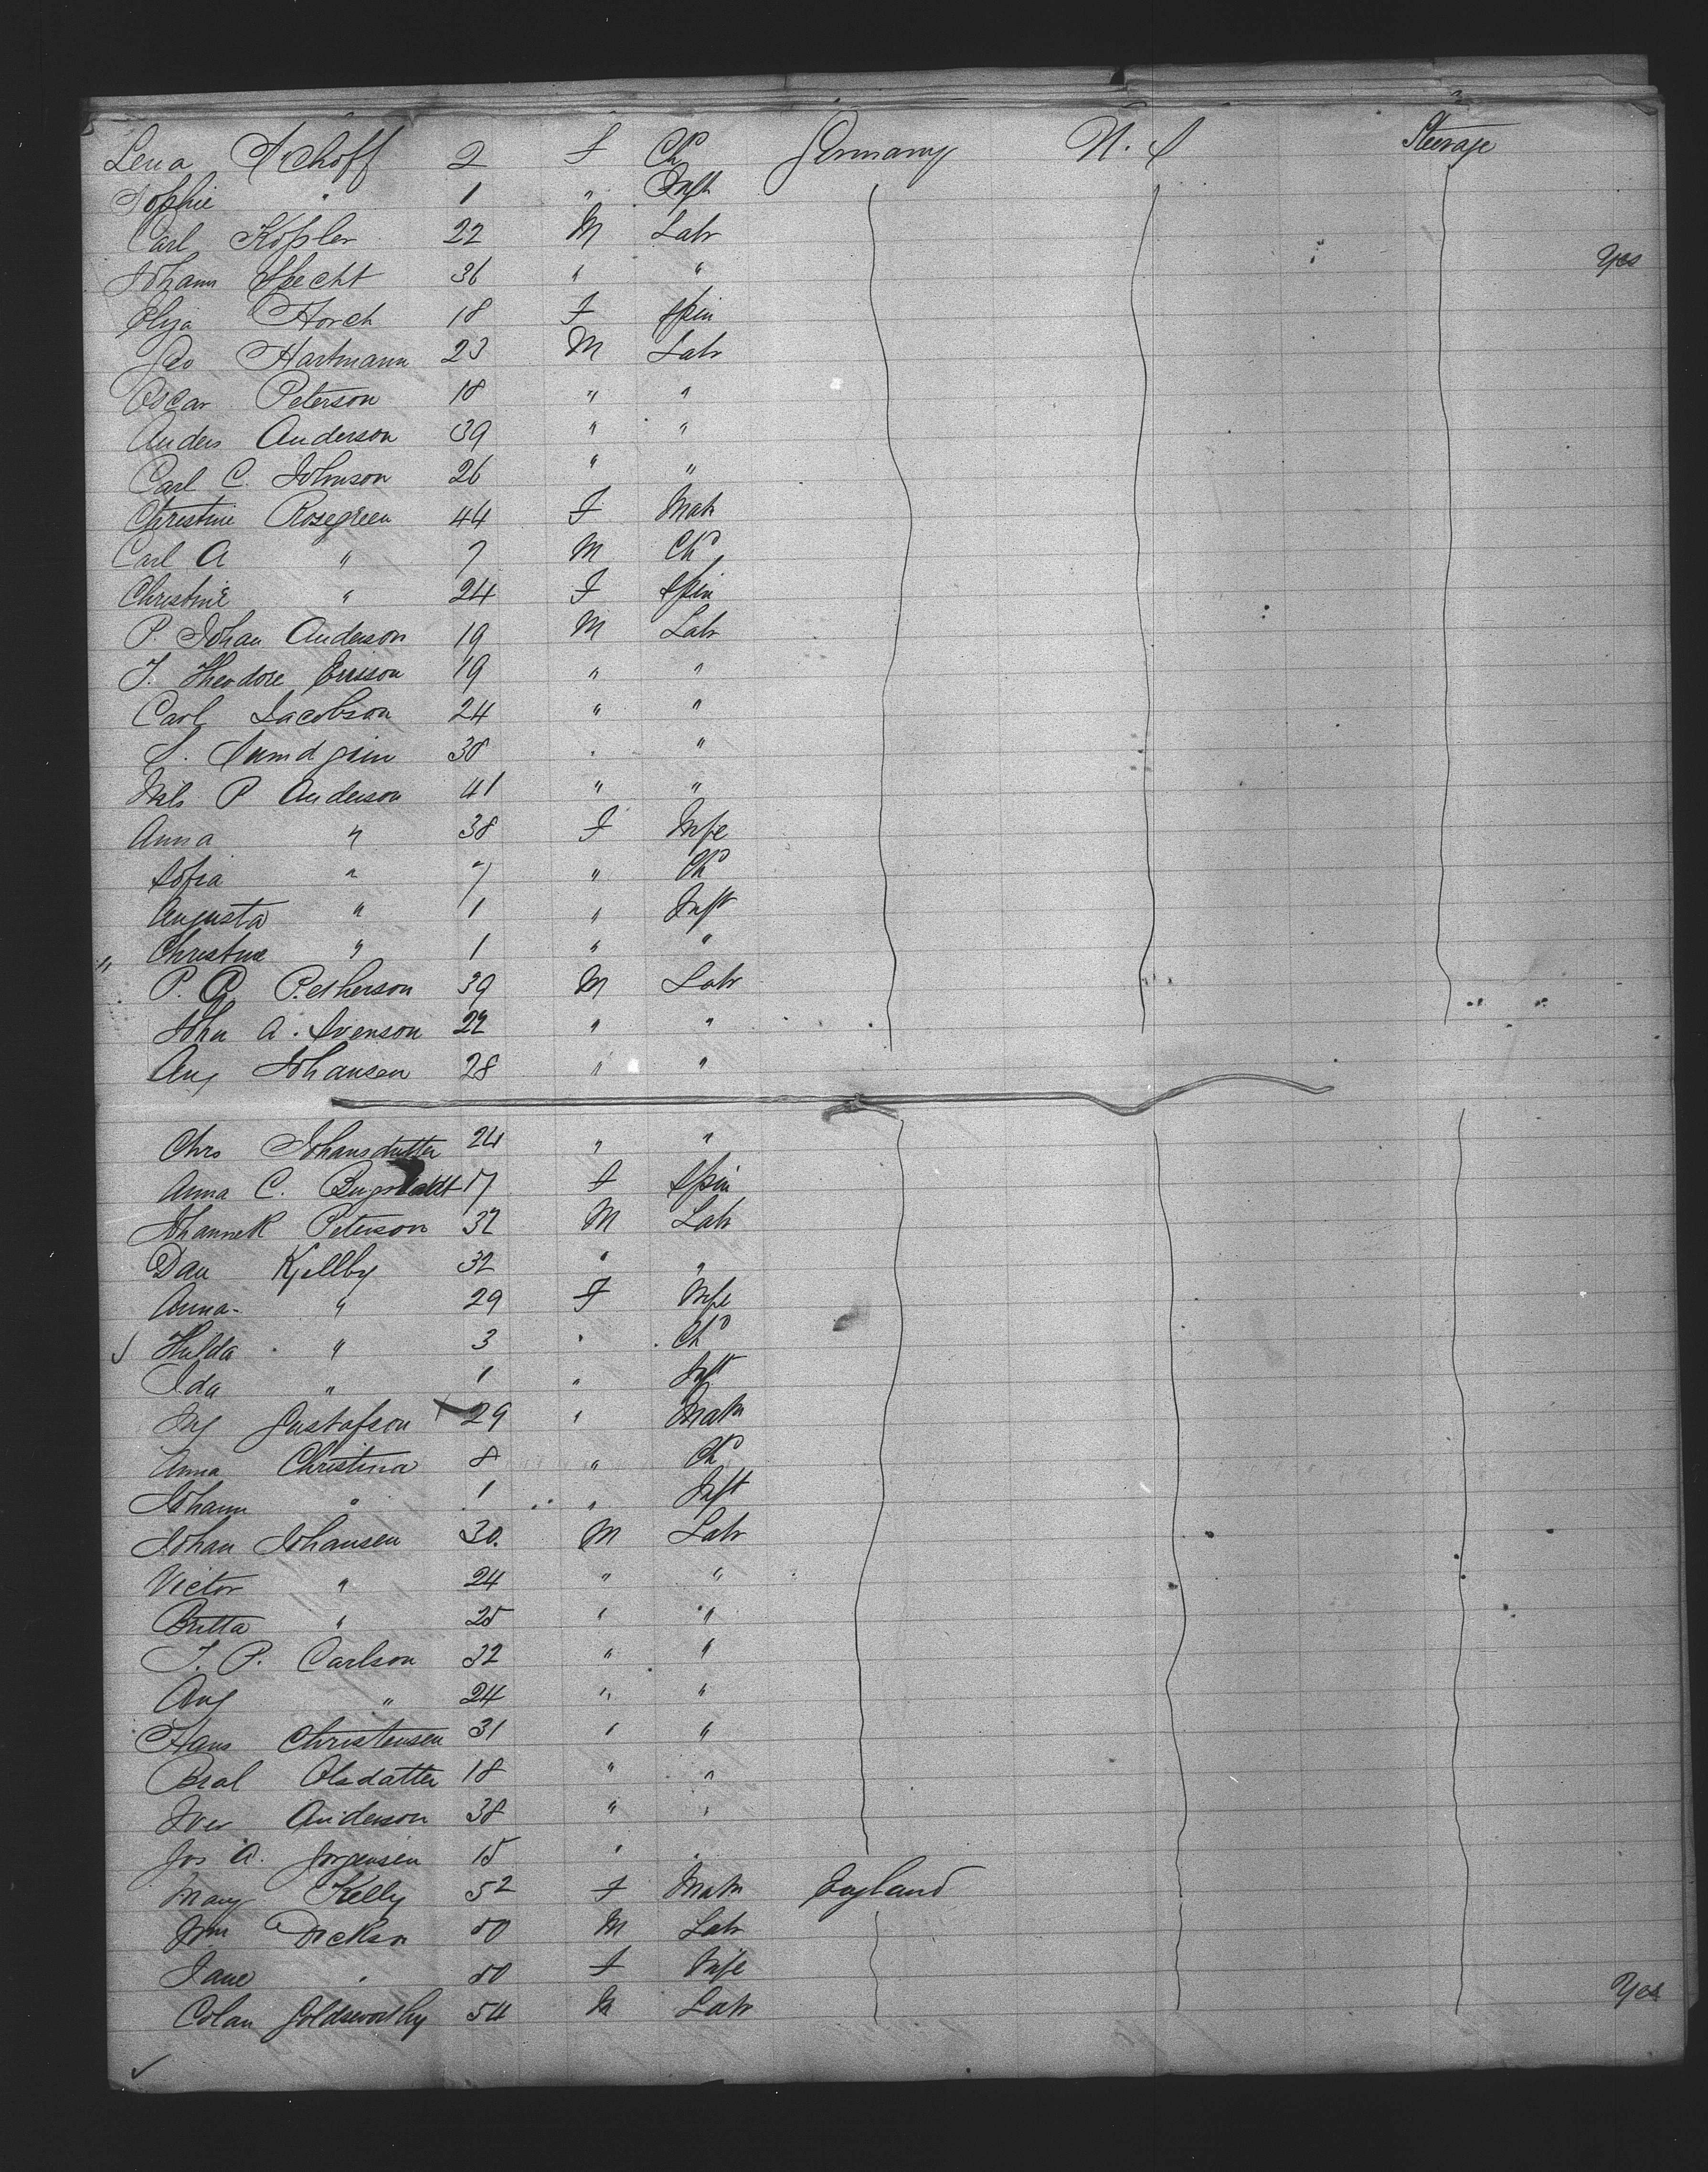 Lena 2 f Chd Germany U.S Steerage
Sophie " 1 " Inft
Carl Kossler 22 M Labr
Johann Specht 36 " " Yes
Eliza Horch 18 F Spin
Geo Hartmann 23 M Labr
Oscar Peterson 18 " "
Anders Anderson 39 " "
Carl C. Johnson 26 " "
Christine Rosegreen 44 F Matr
Carl A " 7 M Chd
Christine " 24 F Spin
P. Johan Anderson 19 M Labr
J. Theodore Ericson 19 " "
Carl Jacobson 24 " "
S. 38 " "
Nils P Anderson 41 " "
Anna " 38 F Wife
Sofia " 7 " Chd
Augusta " 1 " Inft
" Christine " 1 " "
P. Petherson 39 M Labr
John A. Svenson 22 " "
Aug Johansen 28 " "
Chrs Johansdutter 24 " "
Anna C. 17 F Spin
Peterson 32 M Labr
Dan Kjellby 32 " "
Anna " 29 F Wife
Hulda " 3 " Chd
Ida " 1 " Inft
Gustafson 29 " Matr
Anna Christina 8 " Chd
Johann " 1 " Inft
Johan Johansen 30. M Labr
Victor " 24 " "
Britta " 25 " "
J. P. Carlson 32 " "
Aug " 24 " "
Hans Christensen 31 " "
Olsdatter 18 " "
Iver Anderson 38 " "
Jos A. Jorgensen 15 " "
Mary Kelly 52 F Matr England
Wm Dickson 50 M Labr
Jane " 50 F Wife
Colan Goldsworthy 54 M Labr Yes